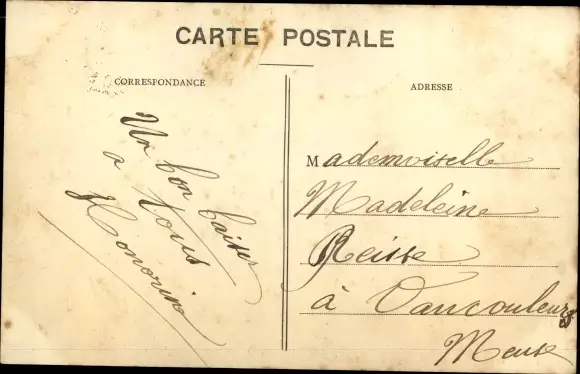 CARTE POSTALE
CORRESPONDANCE
Un bon baiser
a tous
Honorine
ADRESSE
Mademoiselle
Madeleine
Reisse
à Vaucouleurs
Meuse